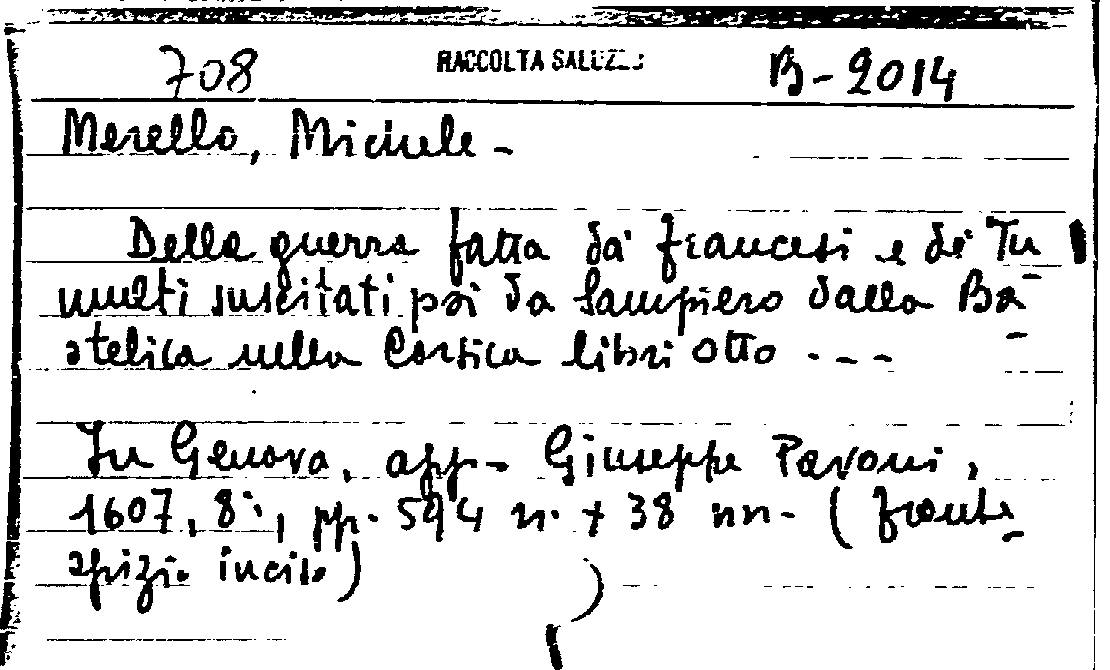 708 RACCOLTA SALUZZO B-2014
Merello, Michele -
Della guerra fatta da' francesi e de' Tu
multi suscitati poi da Sampiero dalla Ba-
stelica nella Corsica libri otto . - - -
In Genova, app. Giuseppe Pavoni,
1607, 8°, pp. 594 n. + 38 nn. (fronte-
spizio inciso)